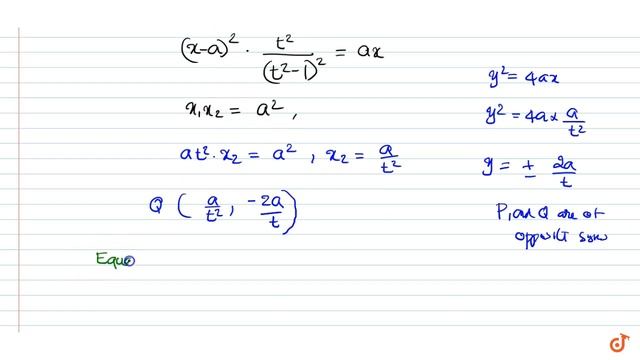 (x-a)² · t²/(t²-1)² = ax
x₁x₂ = a² ,
at²·x₂ = a² , x₂ = a/t²
Q ( a/t² , -2a/t )
Equa
y² = 4ax
y² = 4a × a/t²
y = ± 2a/t
P, and Q are of